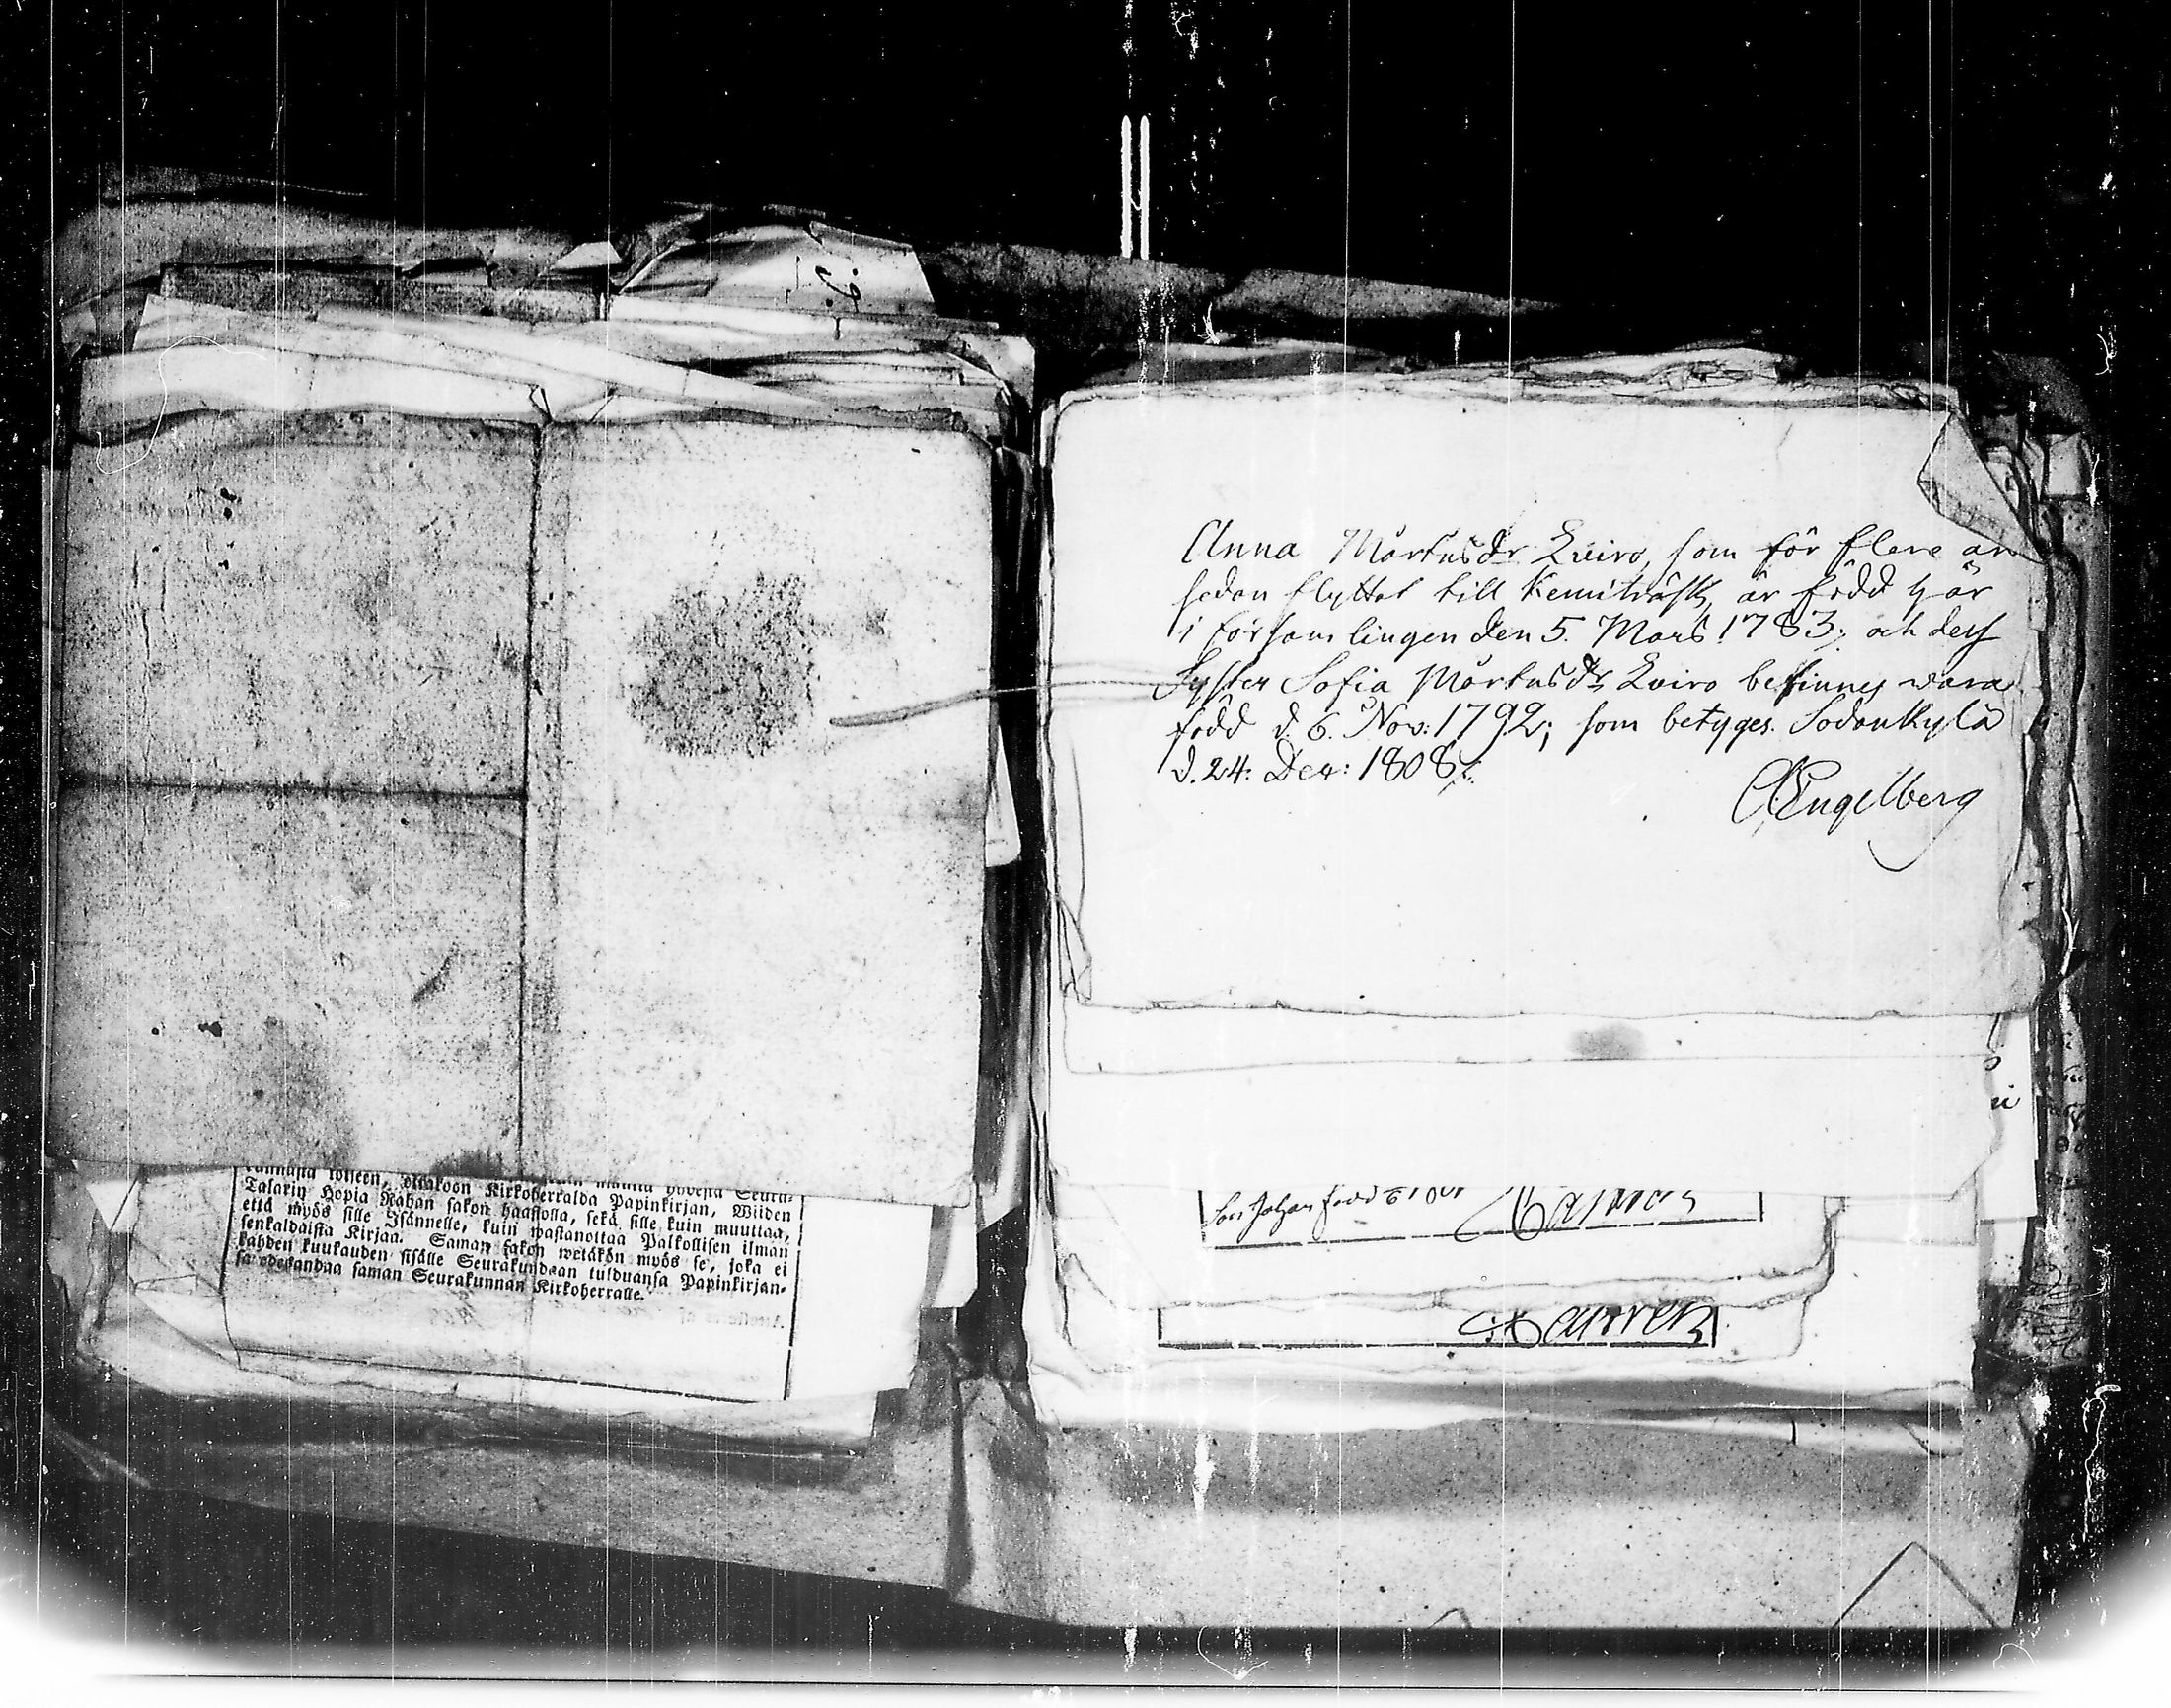 toiseen, ottakoon Kirkoherralda Papinkirjan, Wiiden
Talarin Hopia Rahan sakon haastolla, sekä sille kuin muuttaa,
että myös sille Isännelle, kuin wastanottaa Palkollisen ilman
senkaldaista Kirjaa. Saman sakon wetäkön myös se, joka ei
kahden kuukauden sisälle Seurakundaan tulduansa Papinkirjan-
sa edesandaa saman Seurakunnan Kirkoherralle.
Anna Mårtnsdr Kviro, som för flere år
sedan flyttat till Kemiträsk, är född här
i församlingen den 5. Mars 1783; och dess
Syster Sofia Mårtnsdr Kviro befinnes wara
född d. 6. Nov: 1792; som betyges. Sodankylä
d. 24: Dec: 1808.
Engelberg
Son Johan född